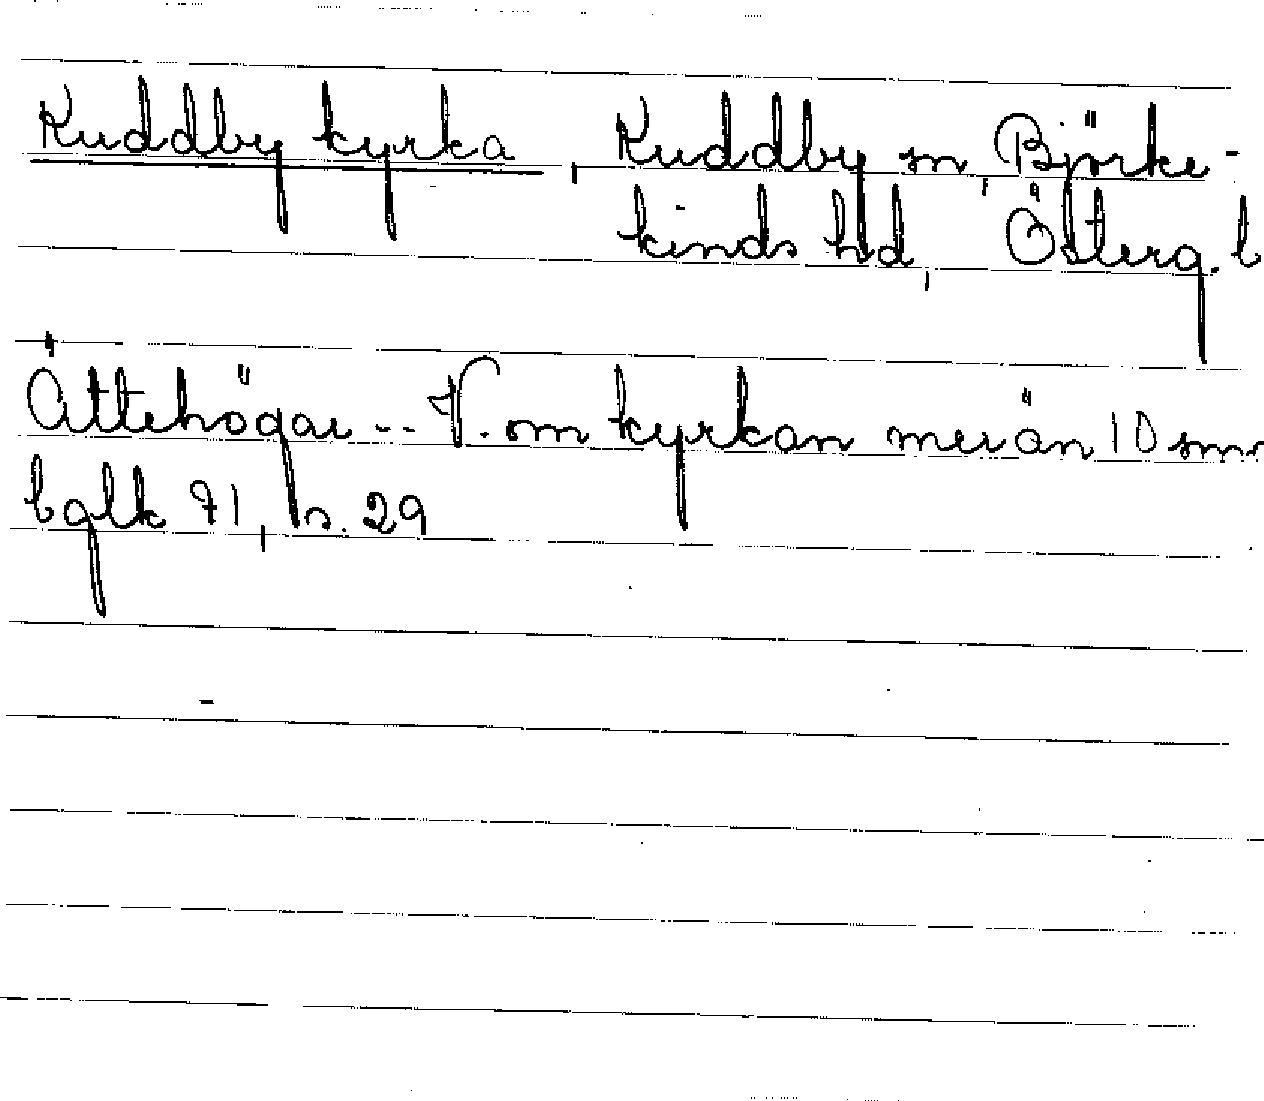 Kuddby kyrka, Kuddby sn, Björke-
kinds hd, Österg. l
Ättehögar -- V. om kyrkan mer än 10 sm
bglk 71, s. 29